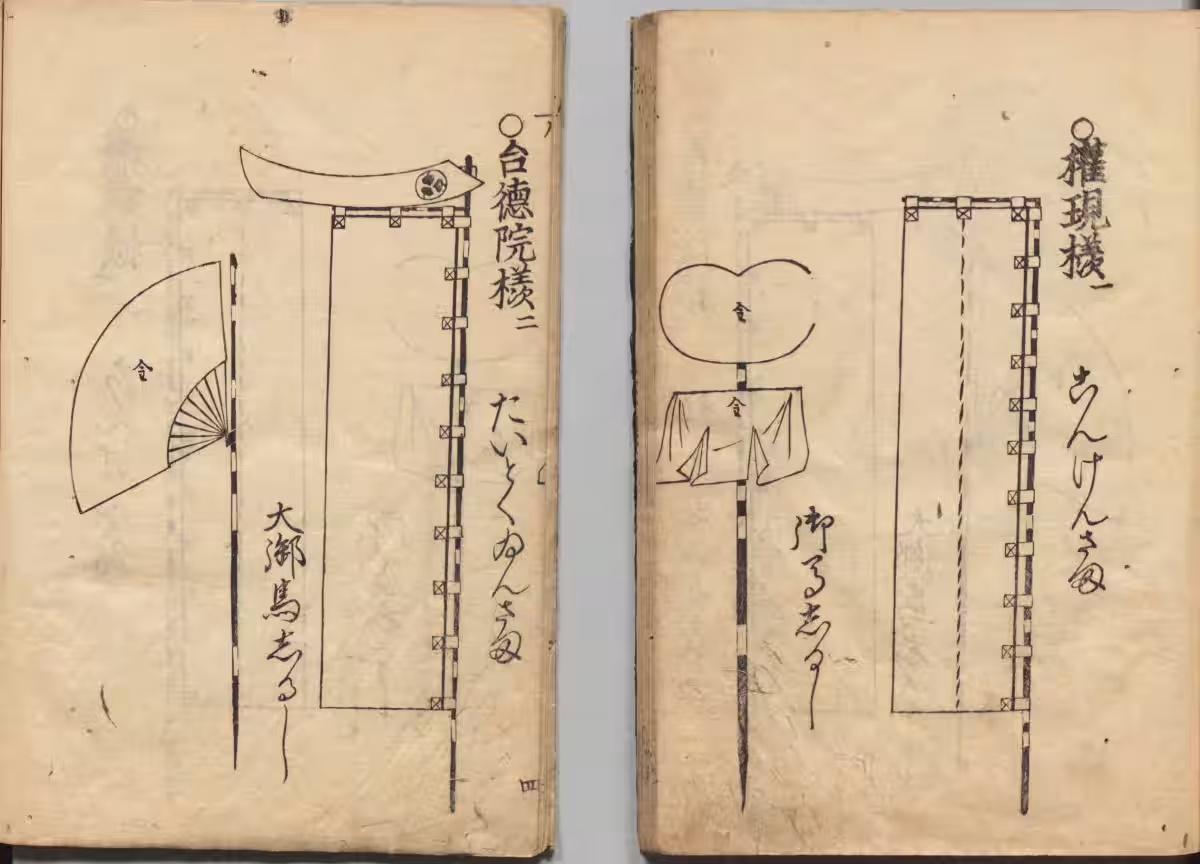 ○權現樣 一
こんけんさま
御馬志るし
金
金
○台徳院樣 二
たいとくゐんさま
大御馬志るし
金
四